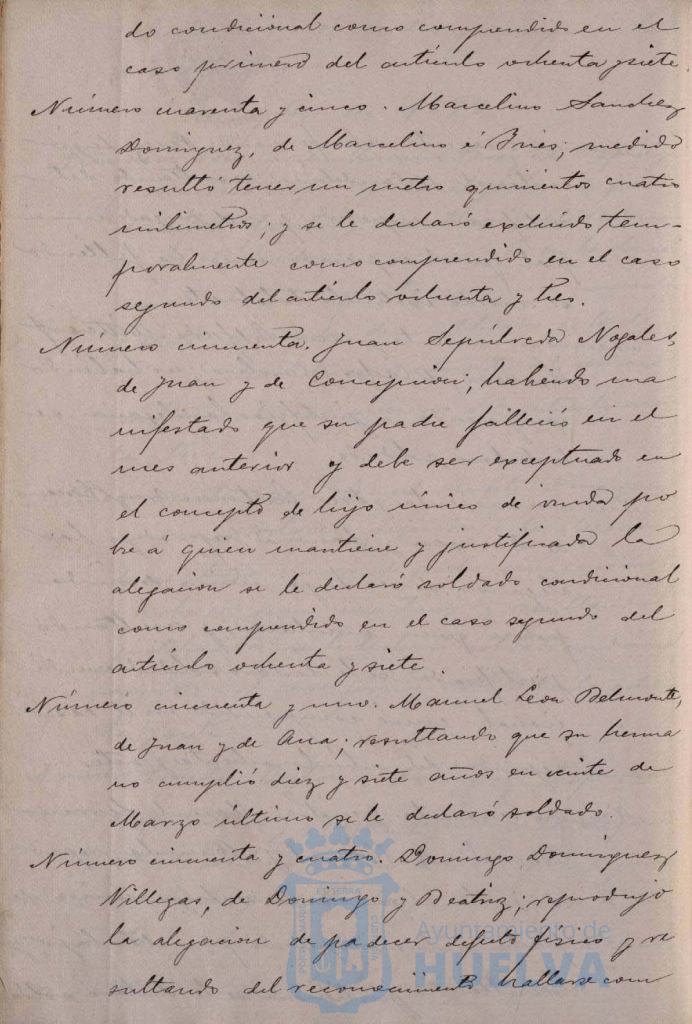 do condicional como comprendido en el
caso primero del artículo ochenta y siete.
Número cuarenta y cinco. Marcelino Sanchez
Dominguez, de Marcelino é Ines; medido
resultó tener un metro quinientos cuatro
milimetros; y se le declaró excluido tem-
poralmente como comprendido en el caso
segundo del artículo ochenta y tres.
Número cincuenta. Juan Sepúlveda Nogales,
de Juan y de Concepcion; habiendo ma
nifestado que su padre falleció en el
mes anterior y debe ser exceptuado en
el concepto de hijo único de viuda po
bre á quien mantiene y justificada la
alegacion se le declaró soldado condicional
como comprendido en el caso segundo del
artículo ochenta y siete.
Número cincuenta y uno. Manuel Leon Belmonte,
de Juan y de Ana; resultando que su herma
no cumplió diez y siete años en veinte de
Marzo último se le declaró soldado.
Número cincuenta y cuatro. Domingo Dominguez
Villegas, de Domingo y Beatriz; reprodujo
la alegacion de padecer defecto físico y re
sultando del reconocimiento hallarse com
Ayuntamiento de
HUELVA